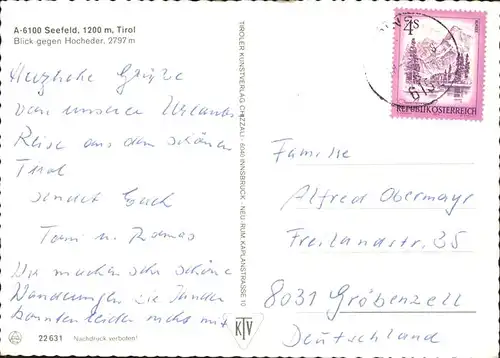 A-6100 Seefeld, 1200 m, Tirol
Blick gegen Hocheder, 2797 m
Herzliche Grüße
von unserer Urlaubs
Reise aus dem schönen
Tirol
sendet Euch
Toni u.
Wir machen sehr schöne
Wanderungen
konnten leider nicht mit
22 631 Nachdruck verboten!
TIROLER KUNSTVERLAG CHIZZALI · 6040 INNSBRUCK - NEU-RUM, KAPLANSTRASSE 10
KTV
4 S
REPUBLIK ÖSTERREICH
Familie
Alfred Obermayr
Freilandstr. 35
8031 Gröbenzell
Deutschland